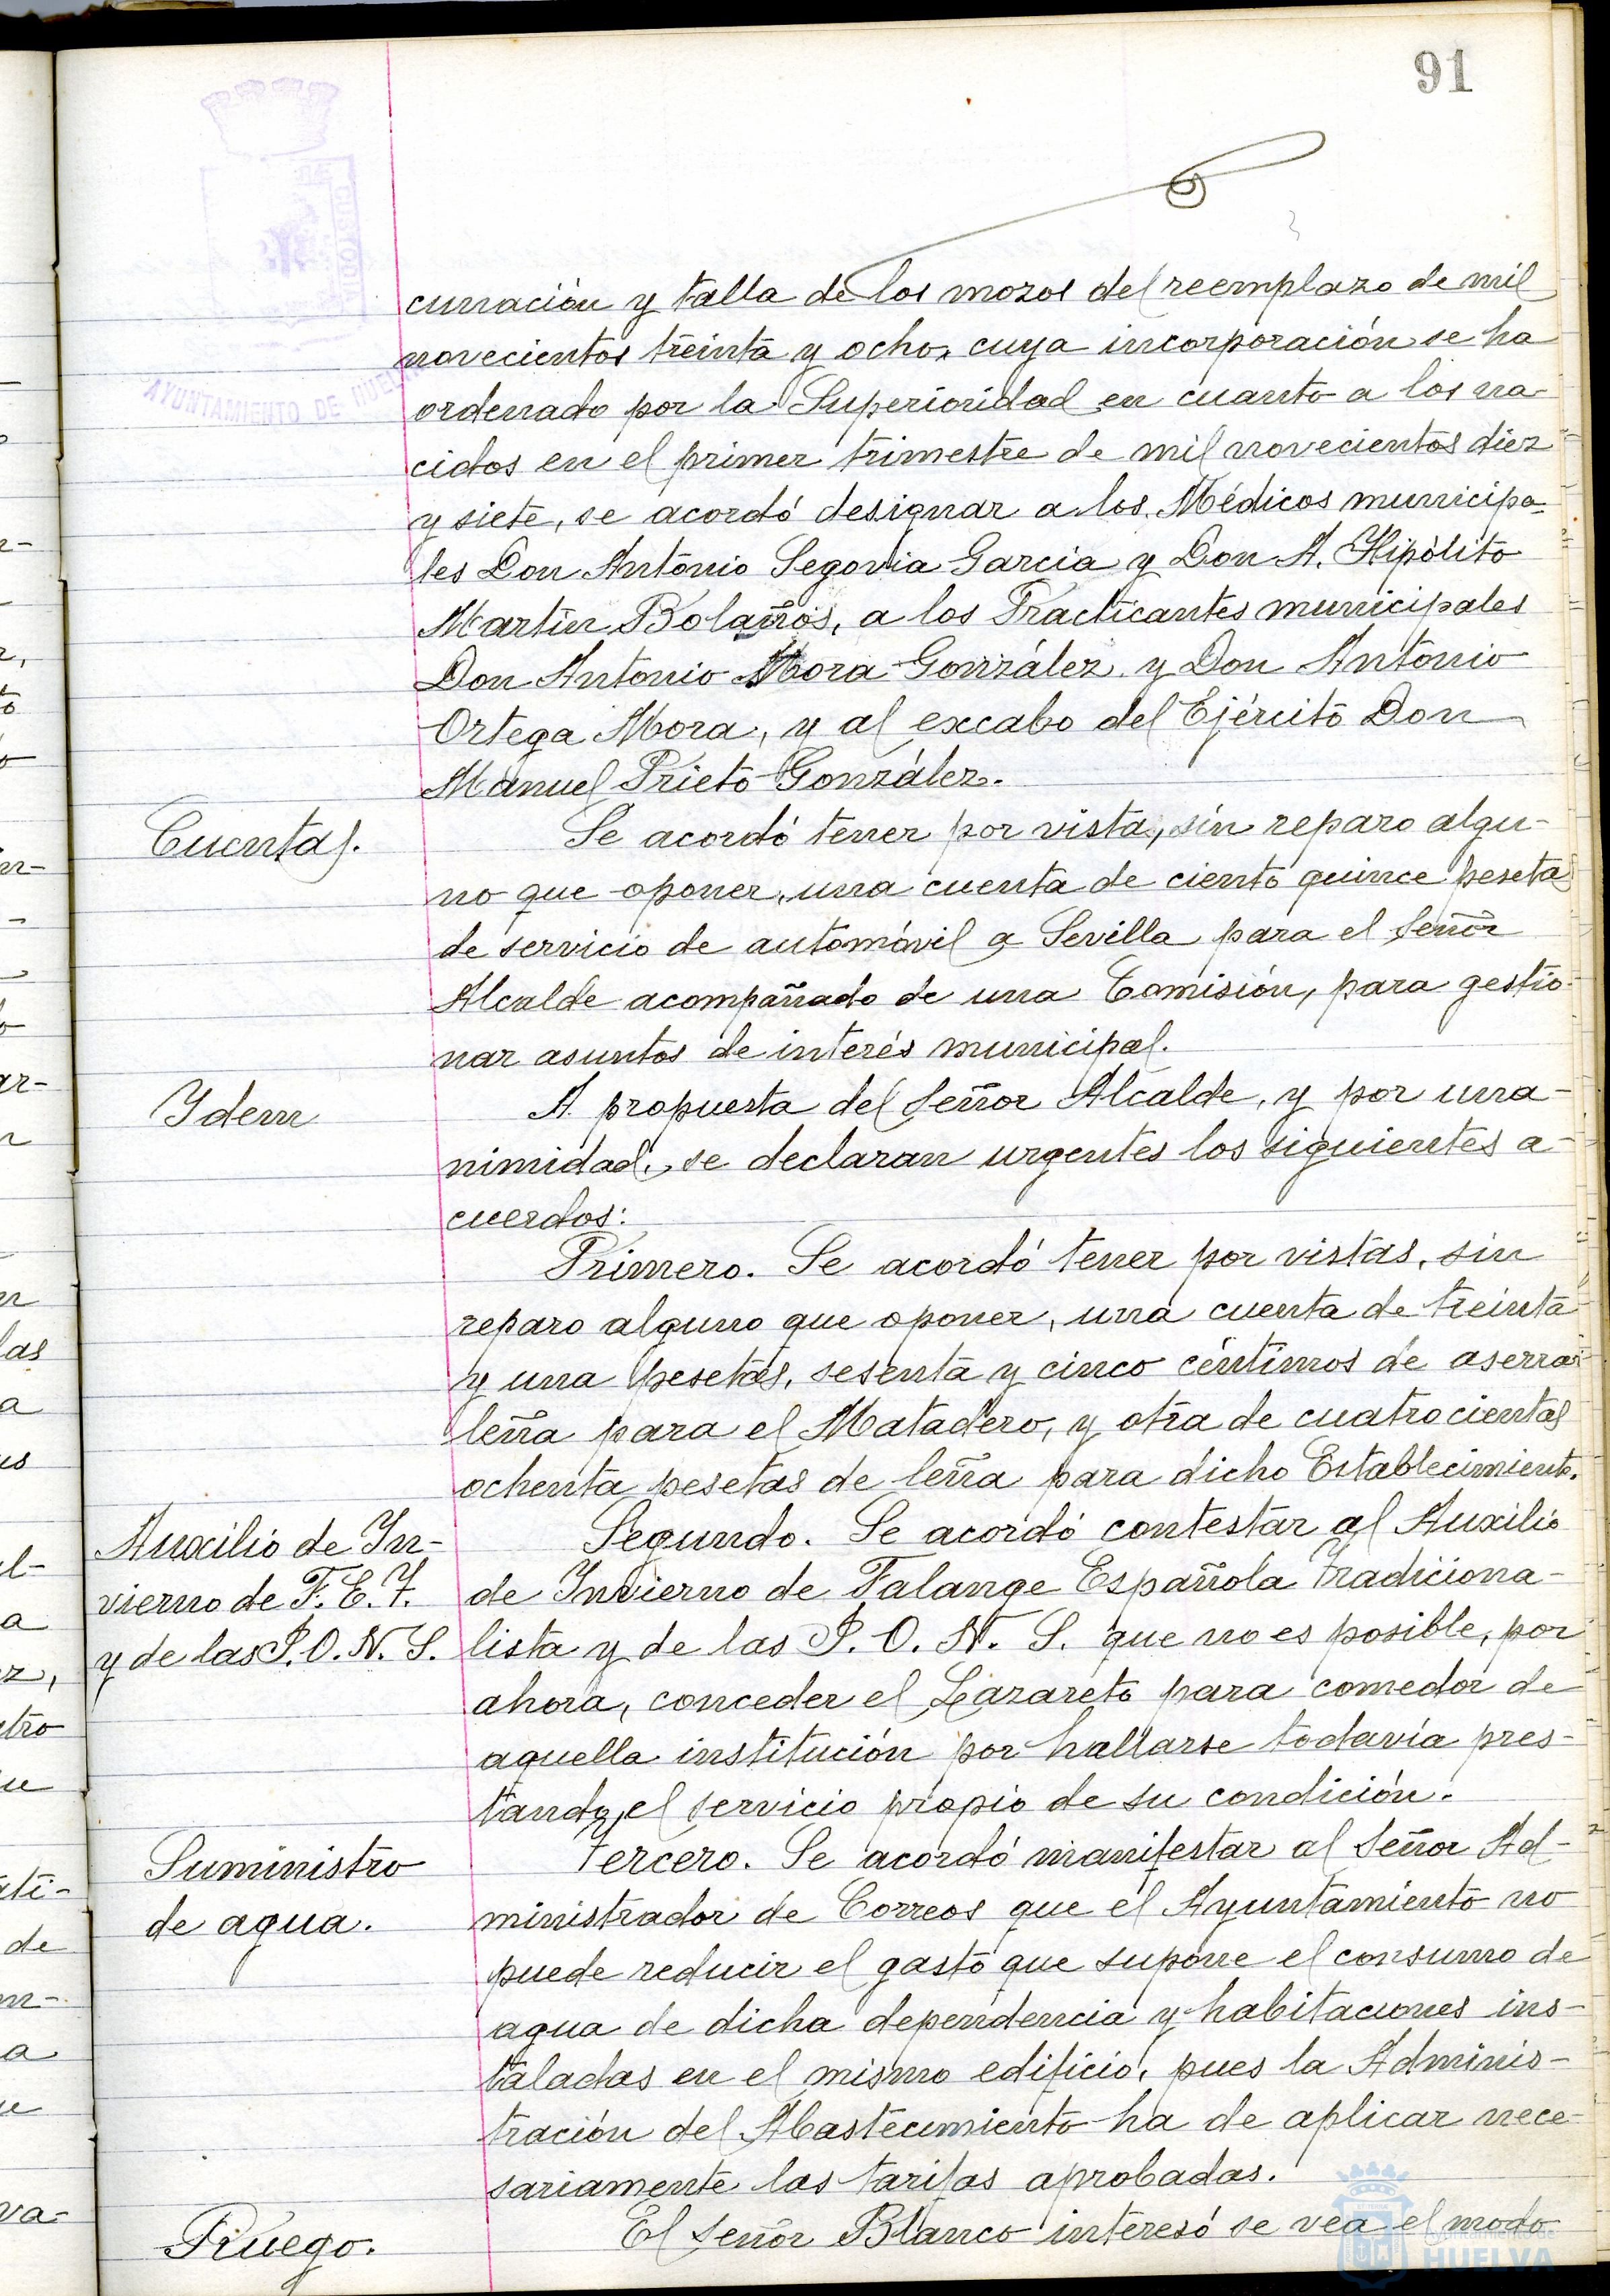 91
AYUNTAMIENTO DE HUELVA
curración y talla de los mozos del reemplazo de mil
novecientos treinta y ocho, cuya incorporación se ha
ordenado por la Superioridad en cuanto a los na-
cidos en el primer trimestre de mil novecientos diez
y siete, se acordó designar a los Médicos municipa-
les Don Antonio Segovia García y Don A. Hipólito
Martín Bolaños, a los Practicantes municipales
Don Antonio Mora González y Don Antonio
Ortega Mora, y al excabo del Ejército Don
Manuel Prieto González.
Cuentas.
Se acordó tener por vista, sin reparo algu-
no que oponer, una cuenta de ciento quince pesetas
de servicio de automóvil a Sevilla para el Señor
Alcalde acompañado de una Comisión, para gestio-
nar asuntos de interés municipal.
Ydem
A propuesta del Señor Alcalde, y por una-
nimidad, se declaran urgentes los siguientes a-
cuerdos:
Primero. Se acordó tener por vistas, sin
reparo alguno que oponer, una cuenta de treinta
y una pesetas, sesenta y cinco céntimos de aserrar
leña para el Matadero, y otra de cuatrocientas
ochenta pesetas de leña para dicho Establecimiento.
Auxilio de In-
vierno de F. E. T.
y de las J. O. N. S.
Segundo. Se acordó contestar al Auxilio
de Invierno de Falange Española Tradiciona-
lista y de las J. O. N. S. que no es posible, por
ahora, conceder el Lazareto para comedor de
aquella institución por hallarse todavía pres-
tando el servicio propio de su condición.
Suministro
de agua.
Tercero. Se acordó manifestar al Señor Ad-
ministrador de Correos que el Ayuntamiento no
puede reducir el gasto que supone el consumo de
agua de dicha dependencia y habitaciones ins-
taladas en el mismo edificio, pues la Adminis-
tración del Abastecimiento ha de aplicar nece-
sariamente las tarifas aprobadas.
Ruego.
El Señor Blanco interesó se vea el modo
HUELVA